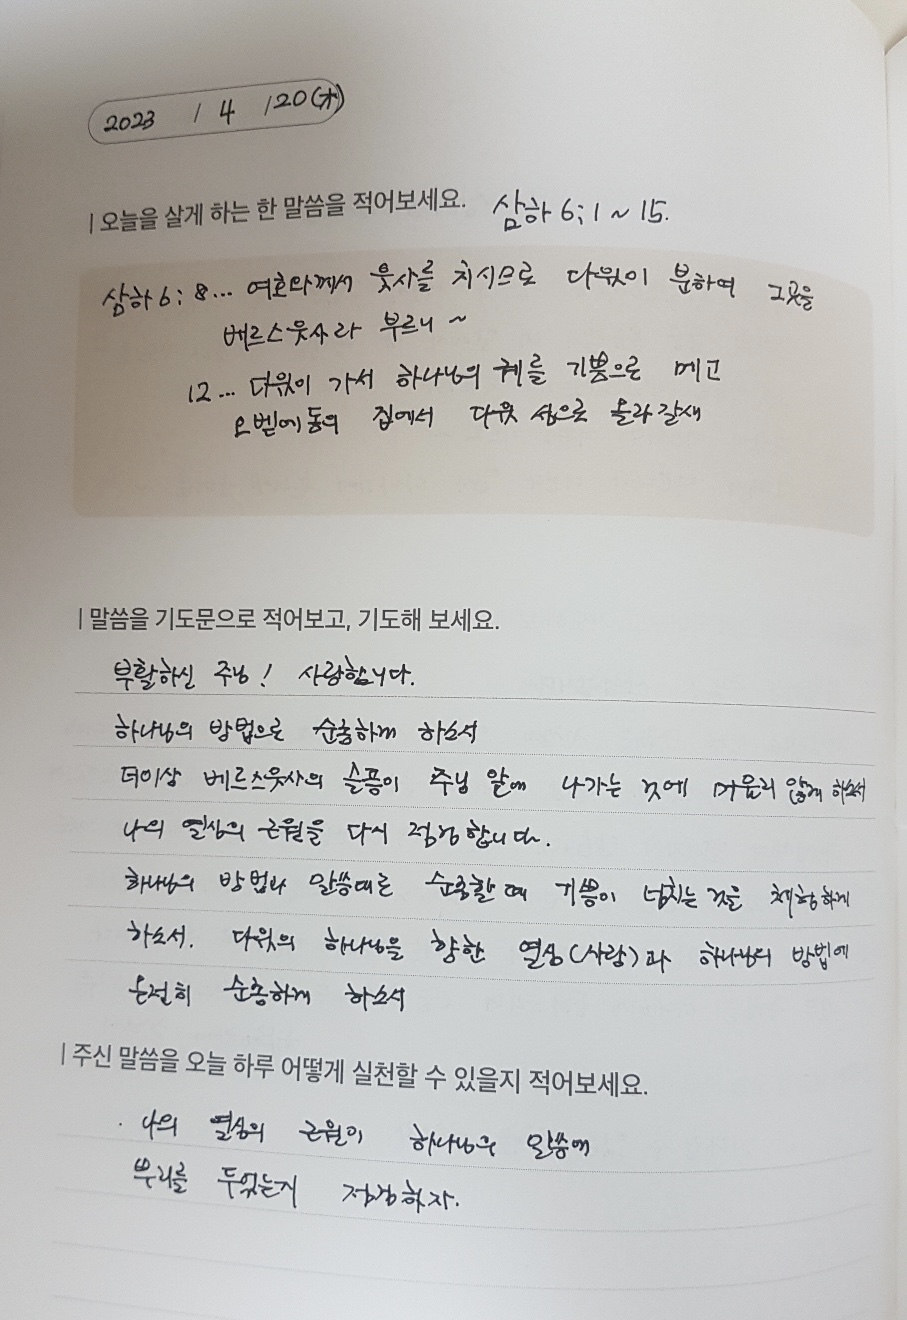 2023 / 4 / 20(木)
오늘을 살게 하는 한 말씀을 적어보세요. 삼하 6; 1 ~ 15.
삼하 6 : 8... 여호와께서 웃사를 치시므로 다윗이 분하여 그곳을
베르스웃사라 부르니 ~
12... 다윗이 가서 하나님의 궤를 기쁨으로 메고
오벧에돔의 집에서 다윗 성으로 올라갈새
말씀을 기도문으로 적어보고, 기도해 보세요.
부활하신 주님! 사랑합니다.
하나님의 방법으로 순종하게 하소서
더이상 베르스웃사의 슬픔이 주님 앞에 나가는 것에 머물리 않게 하소서
나의 열심의 근원을 다시 점검합니다.
하나님의 방법과 말씀대로 순종할 때 기쁨이 넘치는 것을 체험하게
하소서. 다윗의 하나님을 향한 열심(사랑)과 하나님의 방법에
온전히 순종하게 하소서
주신 말씀을 오늘 하루 어떻게 실천할 수 있을지 적어보세요.
· 나의 열심의 근원이 하나님의 말씀에
뿌리를 두었는지 점검하자.